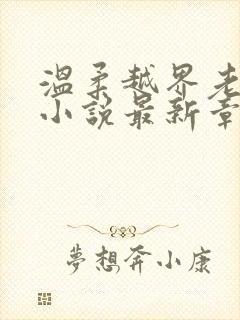 温柔越界老
小说最新章
梦想奔小康